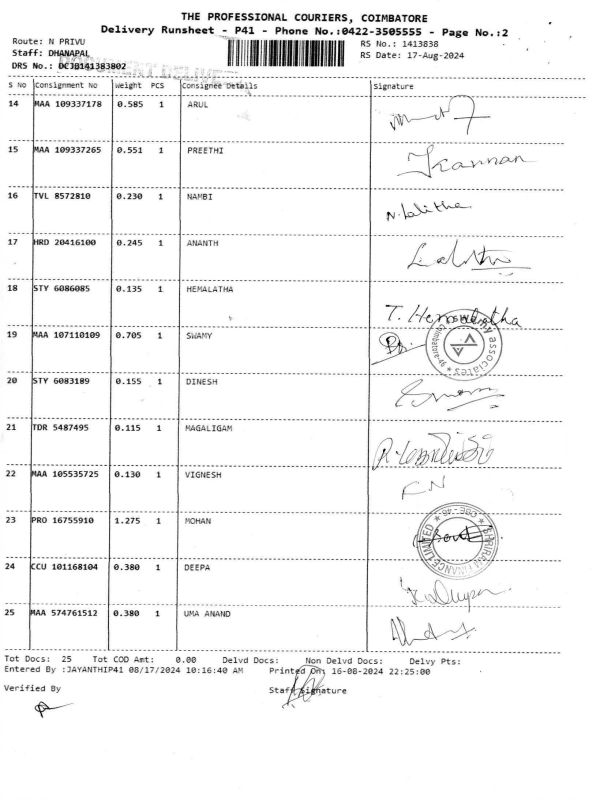 THE PROFESSIONAL COURIERS, COIMBATORE
Delivery Runsheet - P41 - Phone No.:0422-3505555 - Page No.:2
Route: N PRIVU RS No.: 1413838
Staff: DHANAPAL RS Date: 17-Aug-2024
DRS No.: DCJB141383802
S No Consignment No Weight PCS Consignee Details Signature
14 MAA 109337178 0.585 1 ARUL
15 MAA 109337265 0.551 1 PREETHI Kannan
16 TVL 8572810 0.230 1 NAMBI N. Lalitha
17 HRD 20416100 0.245 1 ANANTH
18 STY 6086085 0.135 1 HEMALATHA T. Hemalatha
19 MAA 107110109 0.705 1 SWAMY
20 STY 6083189 0.155 1 DINESH
21 TDR 5487495 0.115 1 MAGALIGAM
22 MAA 105535725 0.130 1 VIGNESH
23 PRO 16755910 1.275 1 MOHAN
24 CCU 101168104 0.380 1 DEEPA
25 MAA 574761512 0.380 1 UMA ANAND
Tot Docs: 25 Tot COD Amt: 0.00 Delvd Docs: Non Delvd Docs: Delvy Pts:
Entered By :JAYANTHIP41 08/17/2024 10:16:40 AM Printed On: 16-08-2024 22:25:00
Verified By Staff Signature